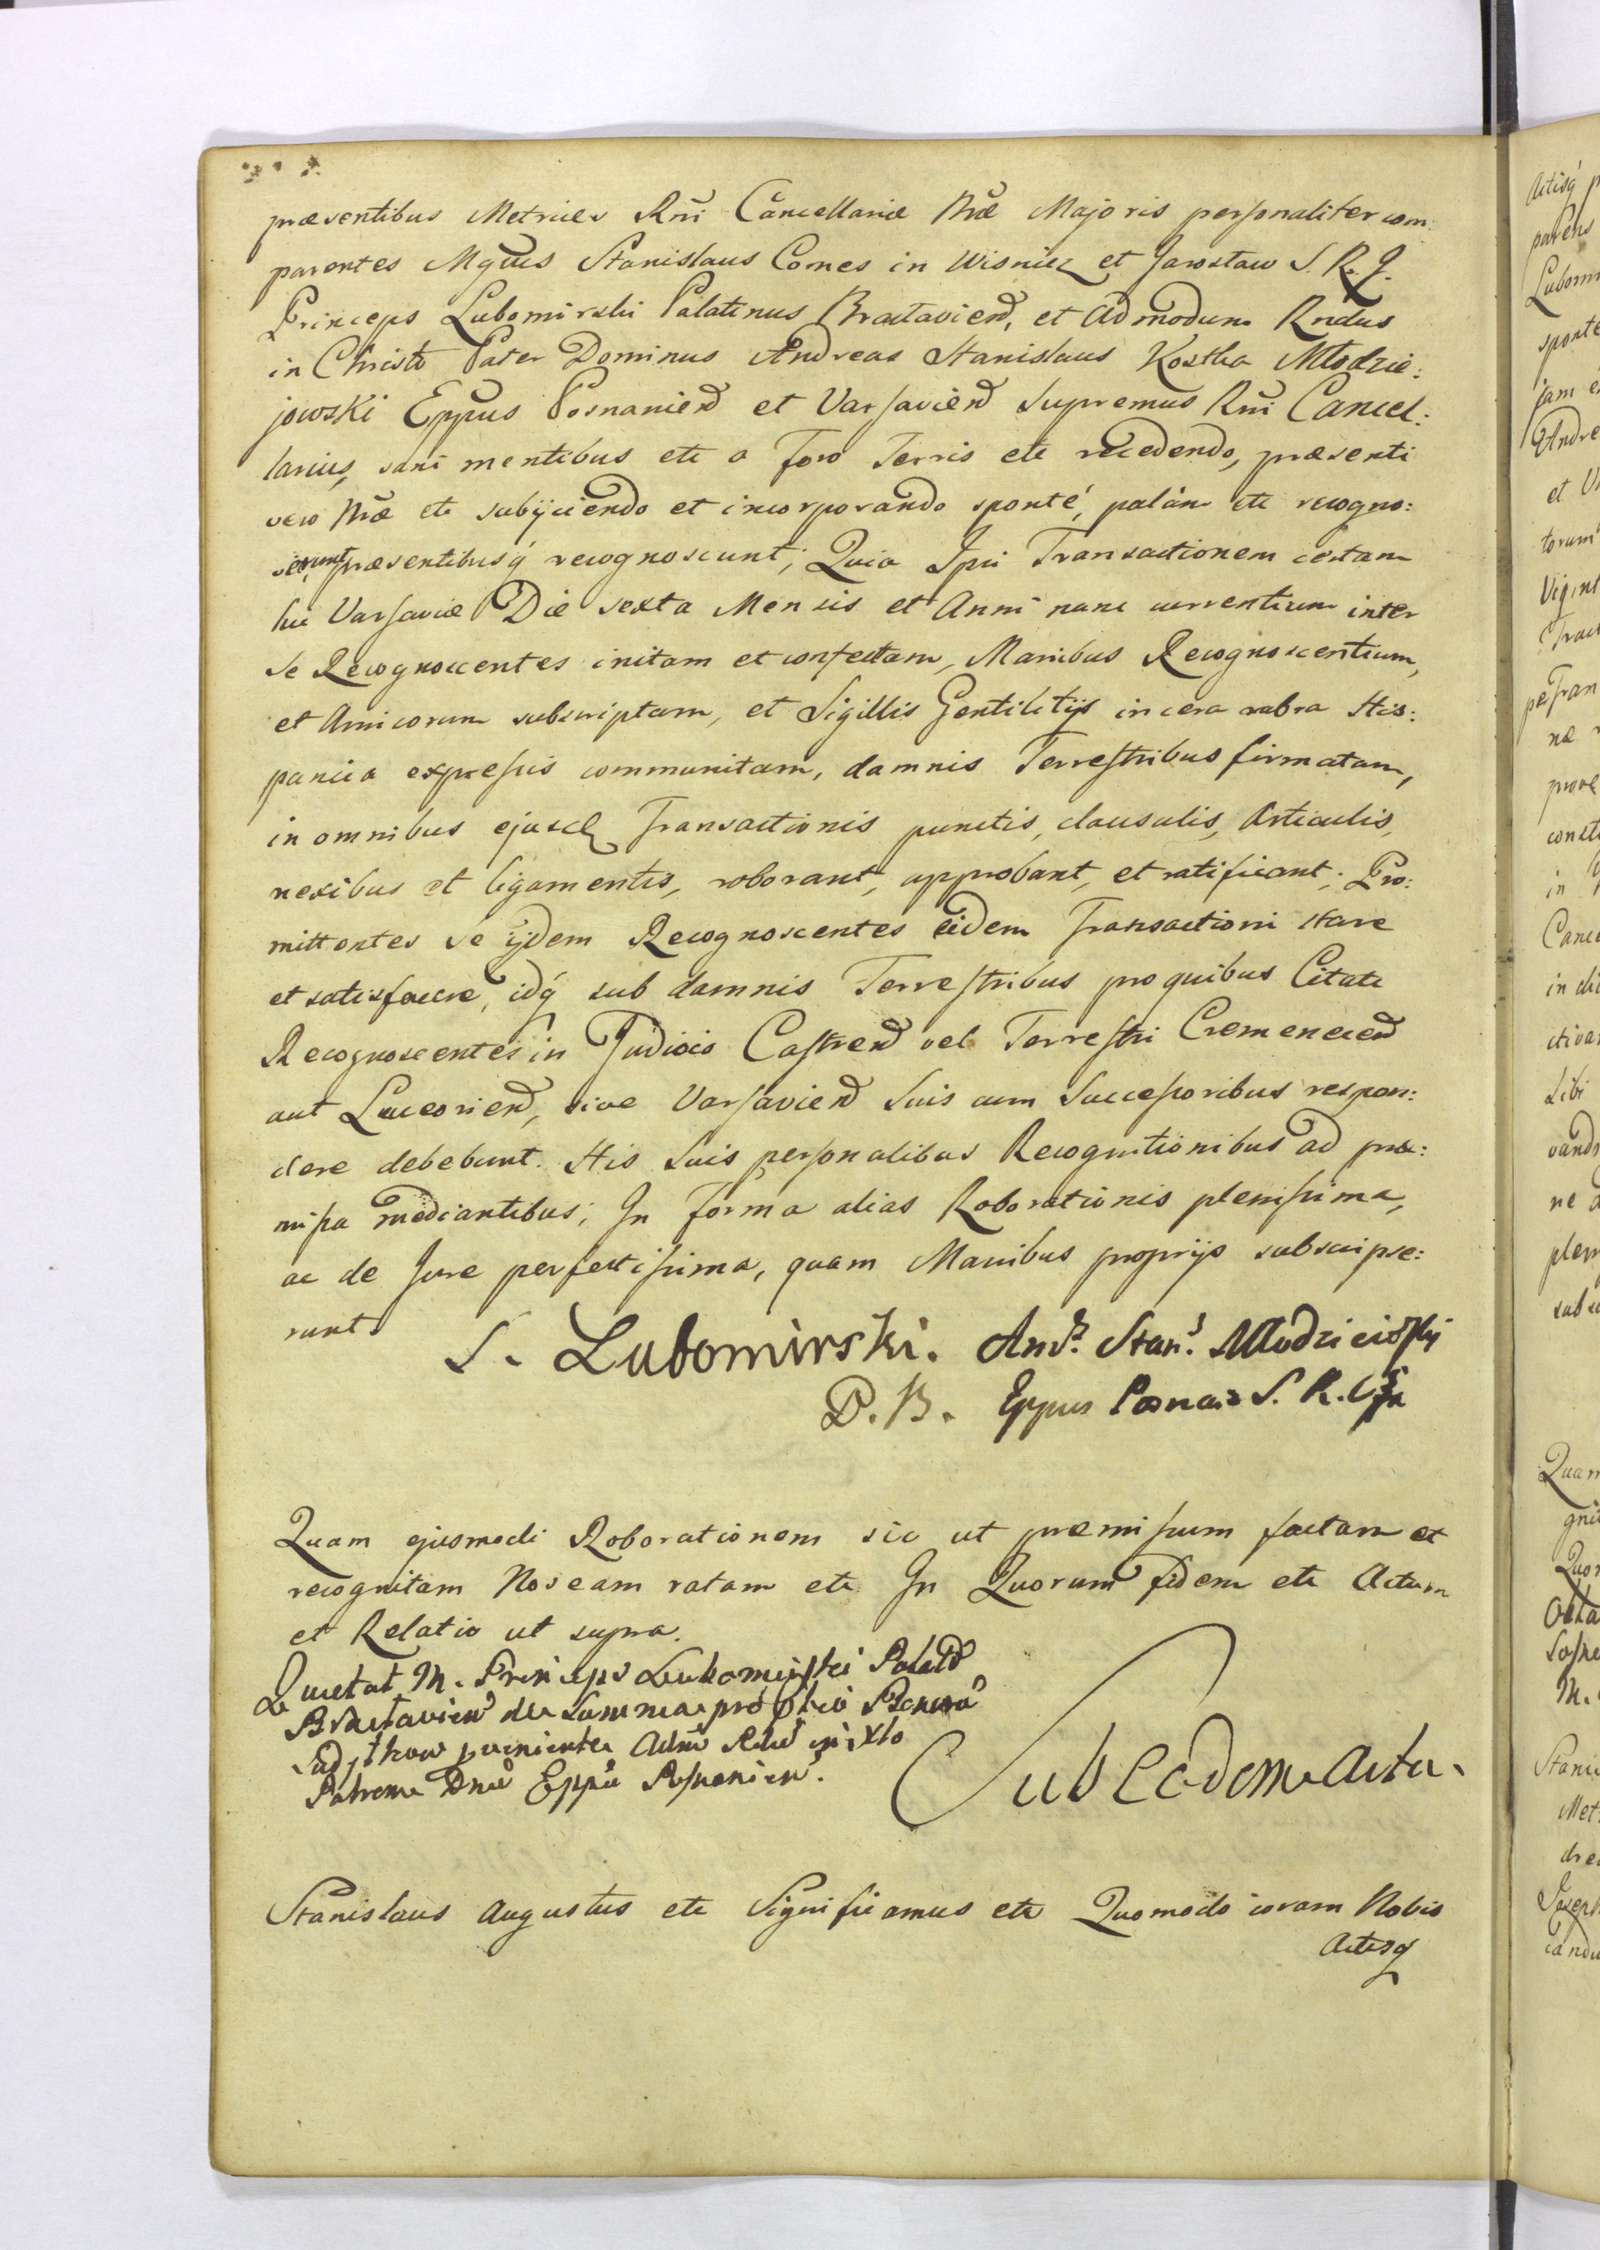 præsentibus Metrices Rñi Cancellariæ Nræ Majoris personaliter com-
parentes Mgñus Stanislaus Comes in Wisnicz et Jarosław S. R. J.
Princeps Lubomirski Palatinus Bractaviend, et Admodum Rndus
in Christo Pater Dominus Andreas Stanislaus Kostka Młodzie:
jowski Eppus Posnaniend et Varsaviend Supremus Rñi Cancel:
larius, sani mentibus etc a Foro Terris etc recedendo, præsenti
vero Nræ etc subijciendo et incorporando sponté, palám etc recogno:
verunt, præsentibusq́ recognoscunt; Quia Ipsi Transactionem certam
hic Varsaviæ Die sexta Mensis et Anni nunc currentium inter
Se Recognoscentes initam et confectam, Manibus Recognoscentium,
et Amicorum subscriptam, et Sigillis Gentilitijs in cera rubra His:
panica expressis communitam, damnis Terrestribus firmatam,
in omnibus ejusd Transactionis punctis, clausulis, Articulis,
nexibus et ligamentis, roborant, approbant, et ratificant; Pro:
mittentes se ijdem Recognoscentes eidem Transactioni stare
et satisfacere, idq́ sub damnis Terrestribus pro quibus Citati
Recognoscentes in Judicio Castrend vel Terrestri Cremenecend
aut Luceoriend, sive Varsaviend Suis cum Successoribus respon:
dere debebunt. His Suis personalibus Recognitionibus ad præ:
missa mediantibus; In Forma alias Roborationis plenissima,
ac de Jure perfectissima, quam Manibus proprijs subscripse:
runt.
S. Lubomirski. And. Stan. Młodzieiowski
P. B. Eppus Posna: S. R. C
Quam ejusmodi Roborationem sic ut præmissum factam et
recognitam Nos eam ratam etc In Quorum fidem etc Actum
et Relatio ut supra.
Quietat M. Princeps Lubomirski Palatd
Bractaviend de Summa pro
Sadjthow
Patrem Dnu Eppu Posnanien.
Sub Eadem Actu.
Stanislaus Augustus etc Significamus etc Quomodo coram Nobis
Actisq